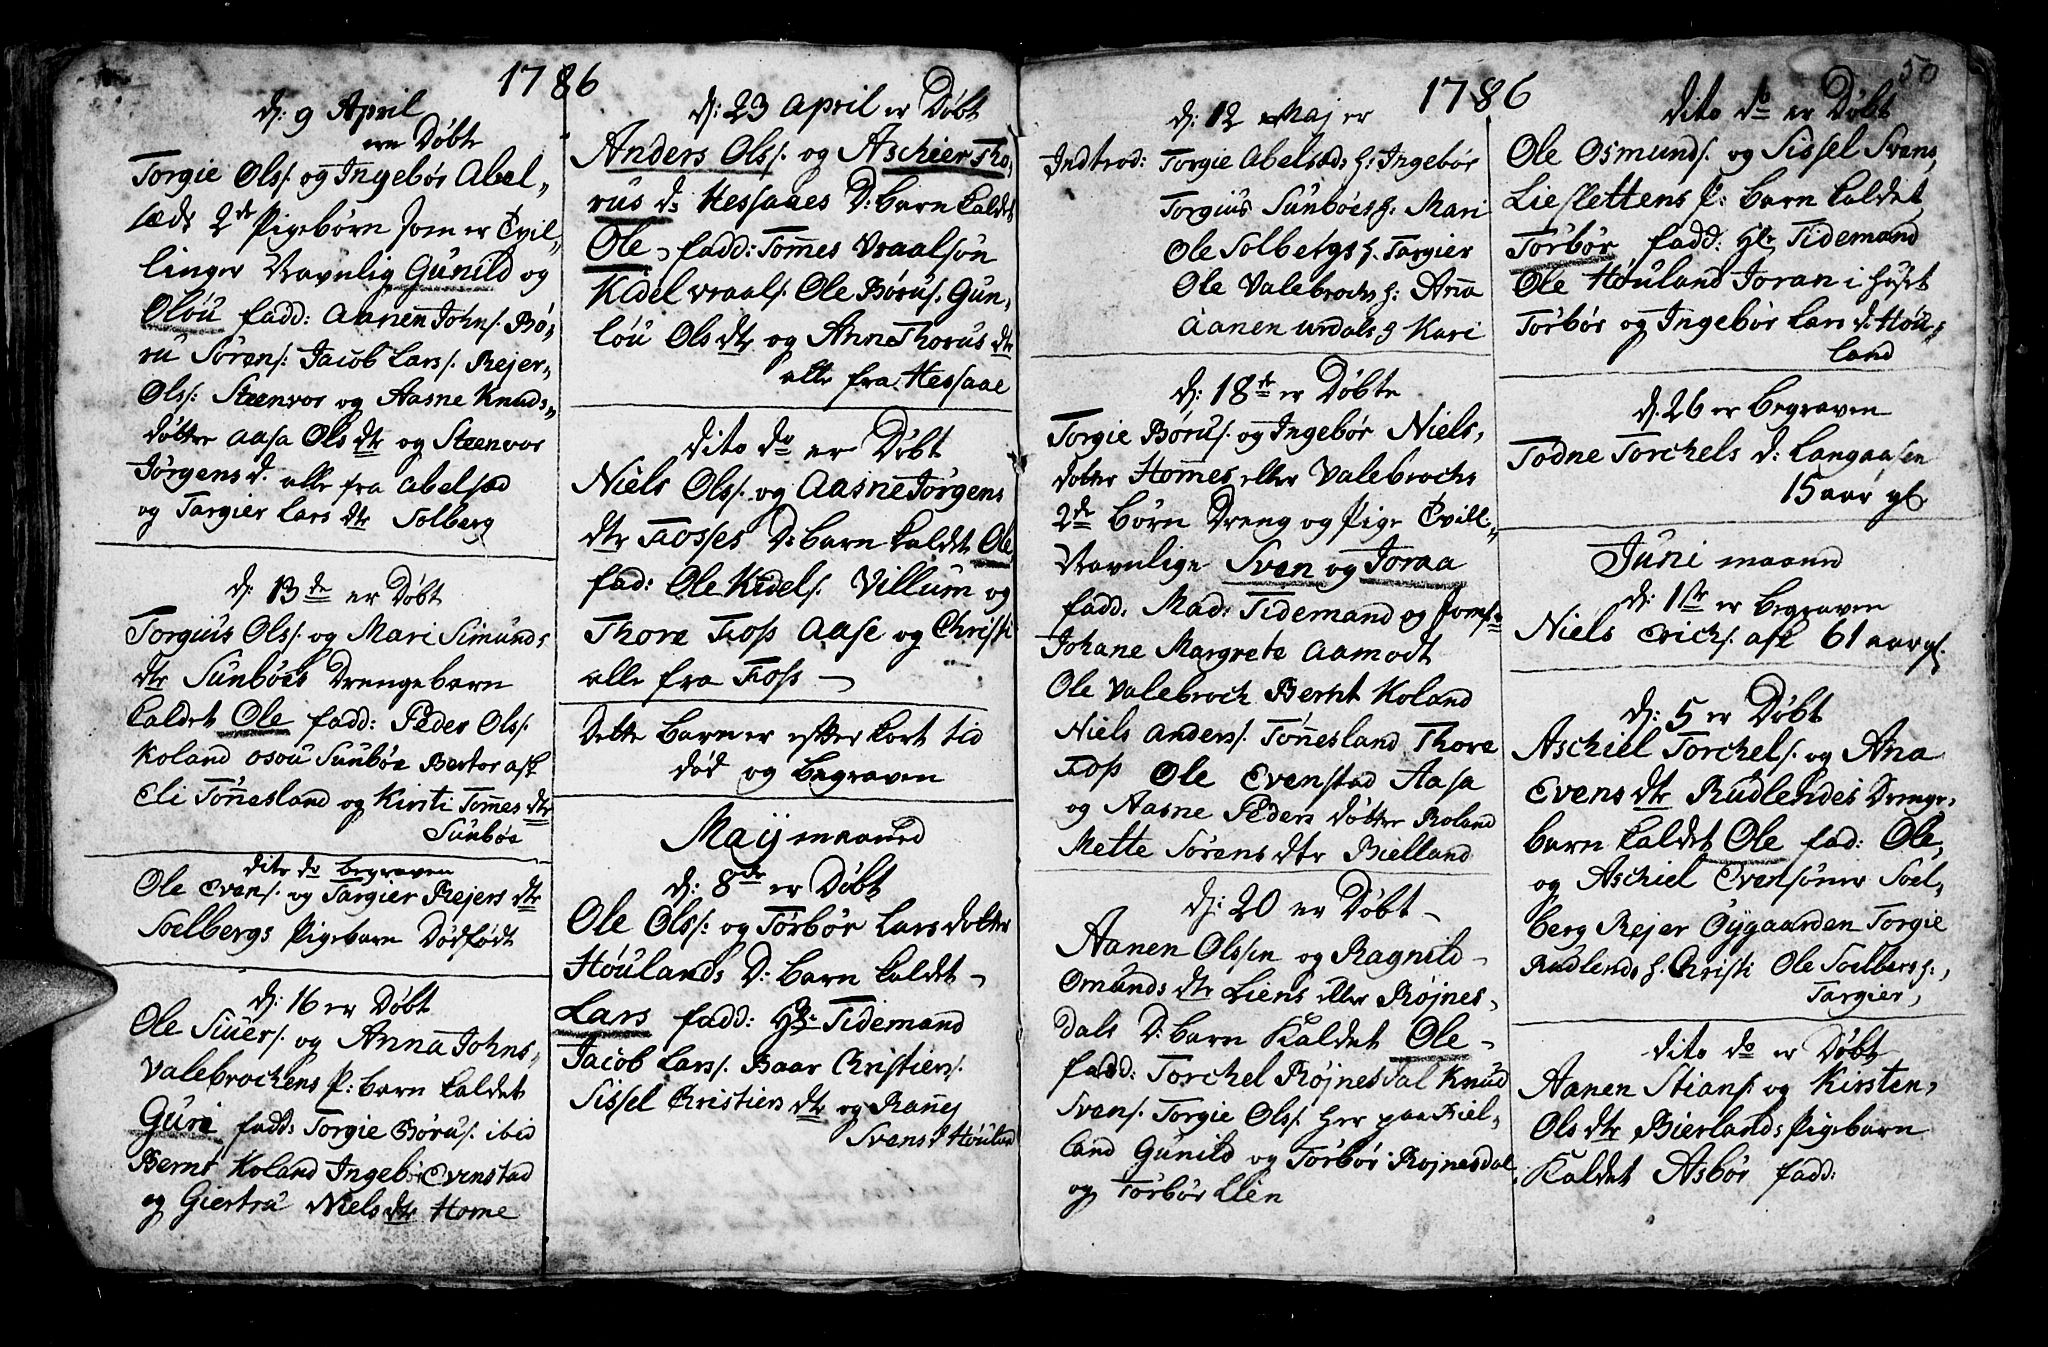 1786
d: 9 April
ere Døbte
Torgie Ols: og Ingebør Abel„
sæds 2de Pigebørn som er Tvil„
linger Navnlig Gunild og
Oløu fadd: Aanen Johns: Bø„
ru Sørens: Jacob Lars: Rejer„
Ols: Steenvor og Aasne Knuds„
døtter Aasa Ols dtr og Steenvor
Jørgens d. alle fra Abelsæd
og Targier Lars dtr Solberg
d: 13de er Døbt
Torguis Ols: og Mari Simunds
dtr Sunbøes Drengebarn
kaldet Ole fadd: Peder Ols:
Koland Osou Sunbøe Bertor Ask
Eli Tønnesland og Kirsti Tommes dtr
Sunbøe
dito do begraven
Ole Evens: og Targier Rejers dtr
Soelbergs Pigebarn Dødfødt
d: 16 er Døbt
Ole Siuers: og Anna Johns„
Valebrochens P: barn kaldet
Guri fadd: Torgie Børus: ibid
Bernt Koland Ingebr Evenstad
og Giertru Niels dtr Home
d: 23 April er Døbt
Anders Ols: og Aschier Tho„
rus d: Hessaaes D: barn kaldet
Ole fadd: Tommes Vraalsøn
Kidel Vraals: Ole Børus: Gun„
løu Ols dtr og Anne Thorus dtr
alle fra Hessaae
dito do er Døbt
Niels Ols: og Aasne Jørgens
dtr Fosses D: barn kaldet Ole
fad: Ole Kidels: Villum og
Thore Foss Aase og Christi
alle fra Foss
Dette barn er efter kort tid
død og begraven
Maij maaned
d: 8de er Døbt
Ole Ols: og Tørbør Lars dotter
Høulands D: barn kaldet
Lars fadd: Hr: Tidemand
Jacob Lars: Baar Christiens:
Sissel Christiens dtr og Ranej
Svens d Høuland
1786
50
d: 12 Maj er
Indtrod: Torgie Abelsæds h: Ingebør
Torgius Sunbøes h: Mari
Ole Solbergs h. Targier
Ole Valebrochs h: Anna
Aanen Urdals h Kari
d: 18de er Døbte
Torgie Børus: og Ingebør Niels„
dotter Hommes eller Valebrochs
2de børn Dreng og Pige Tvill„
Navnlige Sven og Joraa
fadd: Mad: Tidemand og Jomf:
Johane Margrete Aamodt
Ole Valebroch Bernt Koland
Niels Anders: Tønnesland Thore
Foss Ole Evenstad Aasa
og Aasne Peders døtter Roland
Mette Sørens dtr Bielland
d: 20 er Døbt
Aanen Olssen og Ragnild
Omunds dtr Liens eller Røjnes„
dals D: barn Kaldet Ole
fadd: Torchel Røjnesdal Knud
Svens: Torgie Ols: her paa Biel„
land Gunild og Tørbør Røjnesdal
og Tørbør Lien
dito do er Døbt
Ole Osmunds: og Sissel Svens„
Lieslettens P: barn kaldet
Tørbør fadd: Hr Tidemand
Ole Høuland Joran i Huset
Tørbør og Ingebør Lars d: Høu„
land
d: 26 er begraven
Todne Torchels d: Langaasen
15 aar gl.
Juni maaned
d: 1ste er begraven
Niels Erichs: Ask 61 aar gl.
d: 5 er Døbt
Aschiel Torchels: og Ana
Evens dtr Rudlendes Drenge„
barn kaldet Ole fad: Ole„
og Aschiel Evensøner Soel„
berg Rejer Øygaarden Torgie
Rudlends h. Christi Ole Soelbergs h:
Targier,
dito do er Døbt
Aanen Stians: og Kirsten„
Ols dtr Bierlands Pigebarn
Kaldet Asbør fadd: